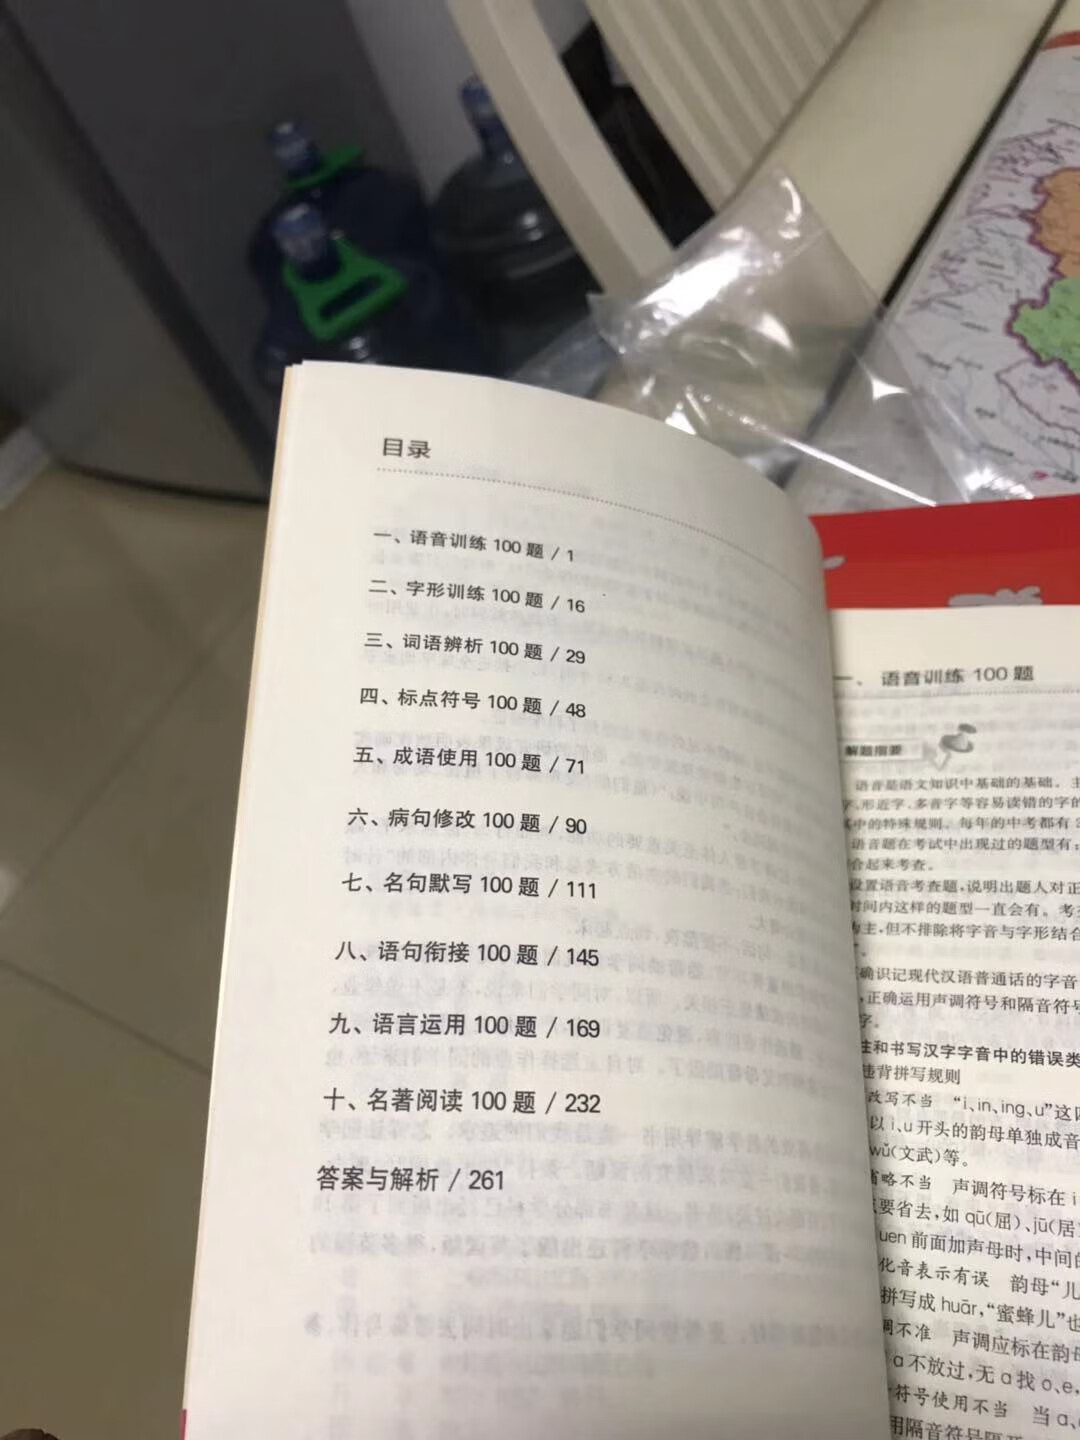 目录
一、语音训练 100 题 / 1
二、字形训练 100 题 / 16
三、词语辨析 100 题 / 29
四、标点符号 100 题 / 48
五、成语使用 100 题 / 71
六、病句修改 100 题 / 90
七、名句默写 100 题 / 111
八、语句衔接 100 题 / 145
九、语言运用 100 题 / 169
十、名著阅读 100 题 / 232
答案与解析 / 261
一、语音训练 100 题
解题指要
语音是语文知识中基础的基础。主
字、形近字、多音字等容易读错的字的
其中的特殊规则。每年的中考都有
语音题在考试中出现过的题型有:
合起来考查。
设置语音考查题,说明出题人对正
时间内这样的题型一直会有。考
为主,但不排除将字音与字形结合
确识记现代汉语普通话的字音
,正确运用声调符号和隔音符号
字。
注和书写汉字字音中的错误类
违背拼写规则
改写不当 “i、in、ing、u”这四
以 i、u 开头的韵母单独成音
wǔ(文武)等。
省略不当 声调符号标在 i
要省去,如 qū(屈)、jū(居)
uen 前面加声母时,中间的
化音表示有误 韵母“儿
拼写成 huār,“蜜蜂儿”也
调不准 声调应标在韵母
a 不放过,无 a 找 o、e,
符号使用不当 当 a、
用隔音符号隔开